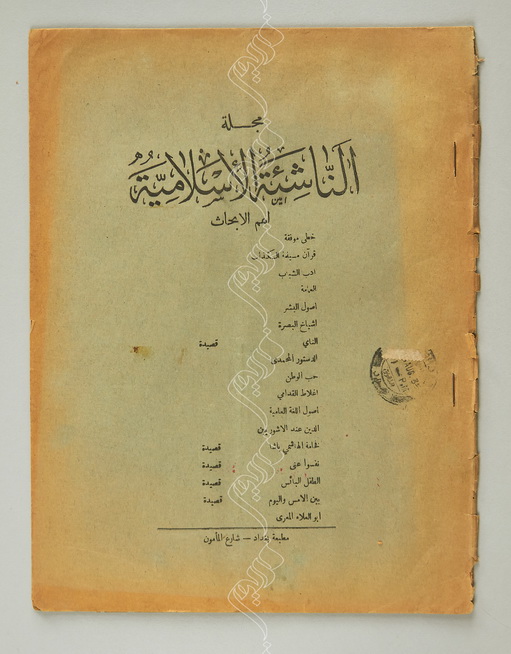 مجلة
الناشئة الإسلامية
اهم الابحاث
خطى موفقة
قرآن مسيلمة الكذاب
ادب الشباب
العمامة
اصول النشر
اشياخ البصرة
الناي قصيدة
الدستور المحمدي
حب الوطن
اغلاط القدامي
اصول اللغة العامية
الدين عند الاشوريين
فخامة الهاشمي باشا قصيدة
نفسوا عنى قصيدة
الطفل البائس قصيدة
بين الامس واليوم قصيدة
ابو العلاء المعرى
مطبعة بغداد — شارع المأمون